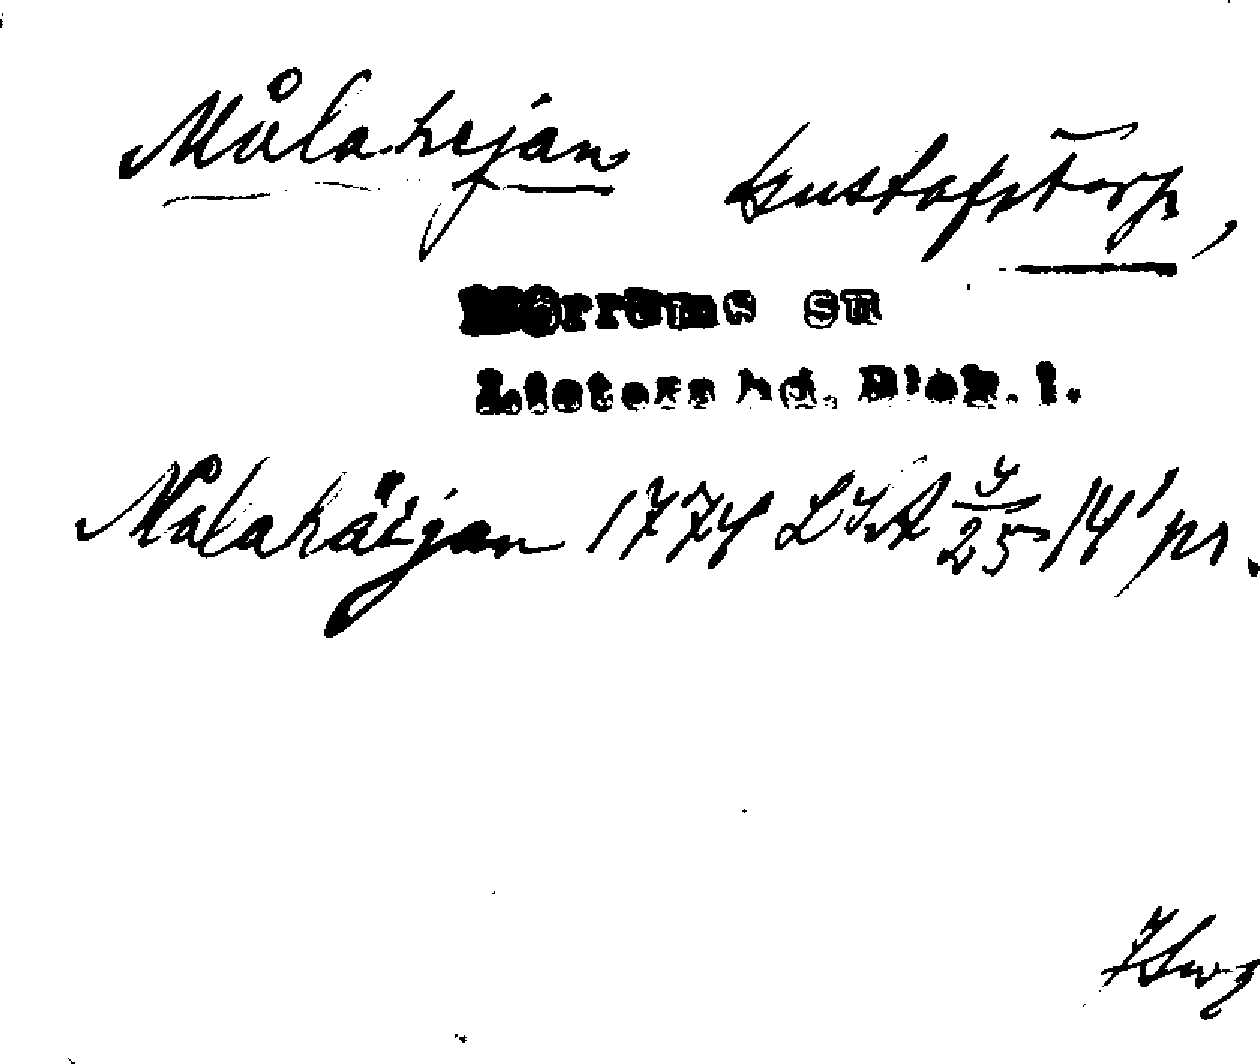 Målahejan Gustafstorp,
Mörrums sn
Listers hd. Blek. l.
Målahäijan 1774 LSA 25 14' pr.